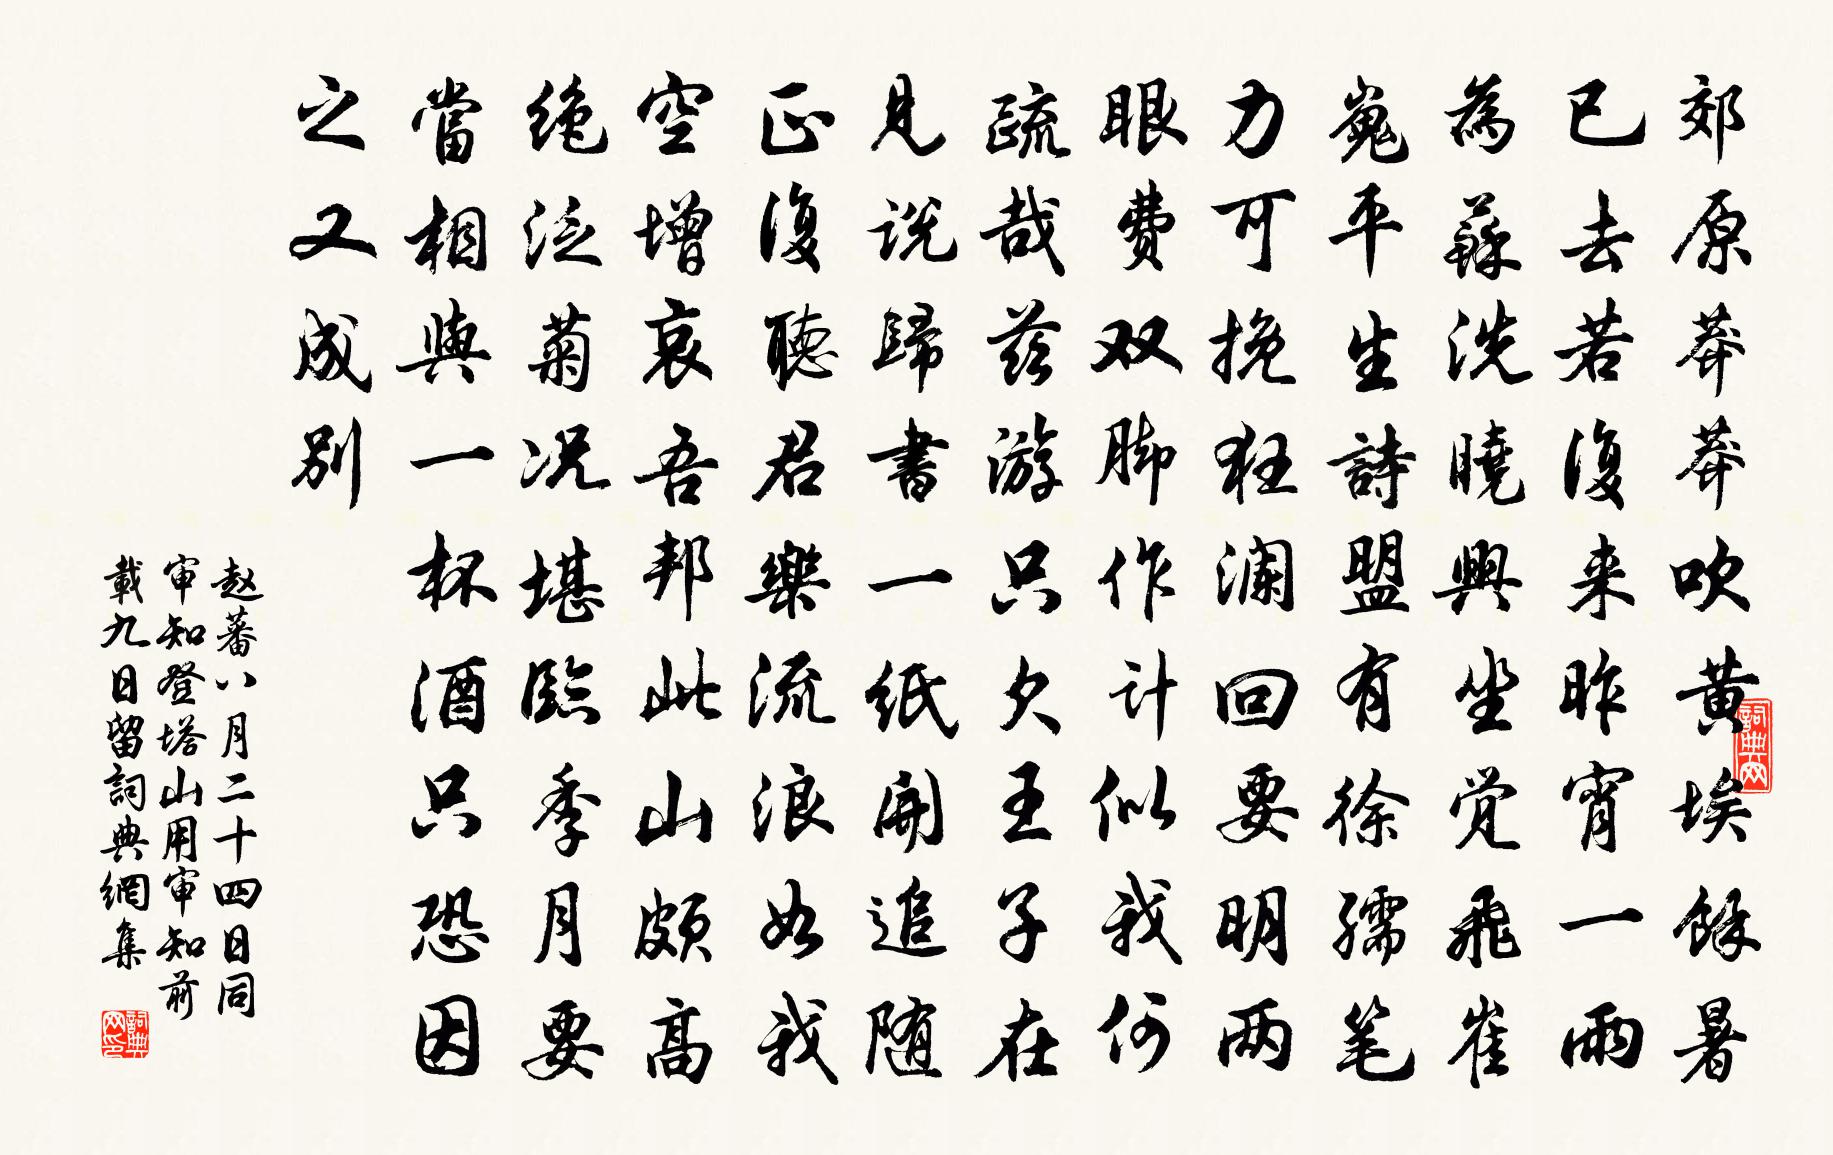 郊原莽莽吹黄埃餘暑
已去若復来昨宵一雨
為蘇洗曉興坐覚飛崔
嵬平生詩盟有徐孺笔
力可挽狂澜回要明两
眼費双脚作计似我何
疏哉兹游只欠王子在
見说歸書一纸開追随
正復聽君樂流浪如我
空增哀吾邦此山頗高
绝泛菊况堪臨季月要
當相與一杯酒只恐因
之又成别
赵蕃八月二十四日同
审知登塔山用审知前
載九日留詞典網集
詞典网
詞典网